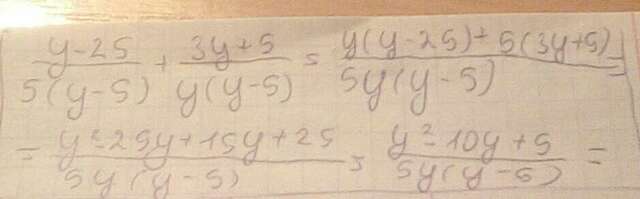 (y-25)/(5(y-5)) + (3y+5)/(y(y-5)) = (y(y-25)+5(3y+5))/(5y(y-5)) =
= (y²-25y+15y+25)/(5y(y-5)) = (y²-10y+5)/(5y(y-5)) =